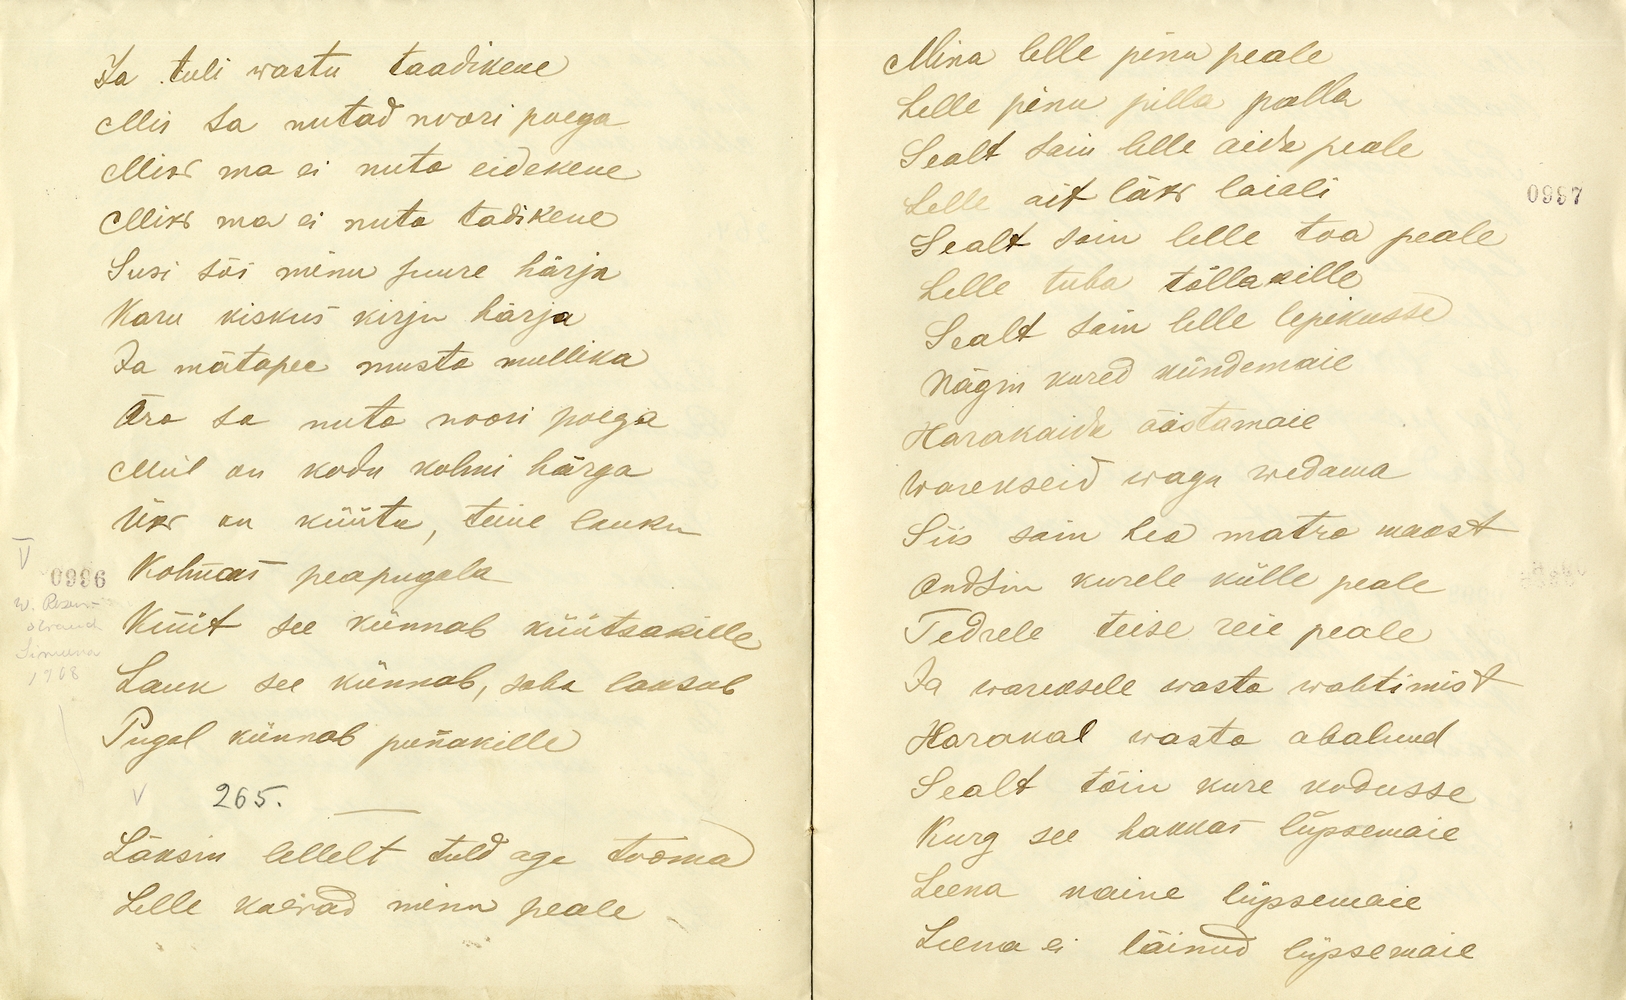 Ja tuli wastu taadikene
Mis sa nutad noori poega
Miks ma ei nuta eidekene
Miks ma ei nuta tadikene
Susi sõi minu suure härja
Karu kiskus kirju härja
Ja mätapee musta mullika
Ära sa nuta noori poega
Miil on kodu kolmi härga
Üks on küüta, teine lauku
Kolmas peapugala
0996
Küüt see künnab küütsakille
Lauk see künnab, saba laksub
Pugal künnab punakille
V 265.
Läksin lellelt tuld aga tooma
Lelle koerad minu peale
Mina lelle pinu peale
Lelle pinu pilla palla
Sealt sain lelle aida peale
Lelle ait läks laiali
0997
Sealt sain lelle toa peale
Lelle tuba tõllakille
Sealt sain lelle lepikusse
Nägin kured kündemaie
Harakaida äästamaie
Warekseid wagu wedama
Siis sain hea matra maast
Andsin kurele külle peale
Tedrele teise reie peale
Ja wareksele wasta wahtimist
Harakal wasta abaluud
Sealt tõin kure kodusse
Kurg see hakkas lüpsemaie
Leena naine lüpsemaie
Leena ei läinud lüpsemaie